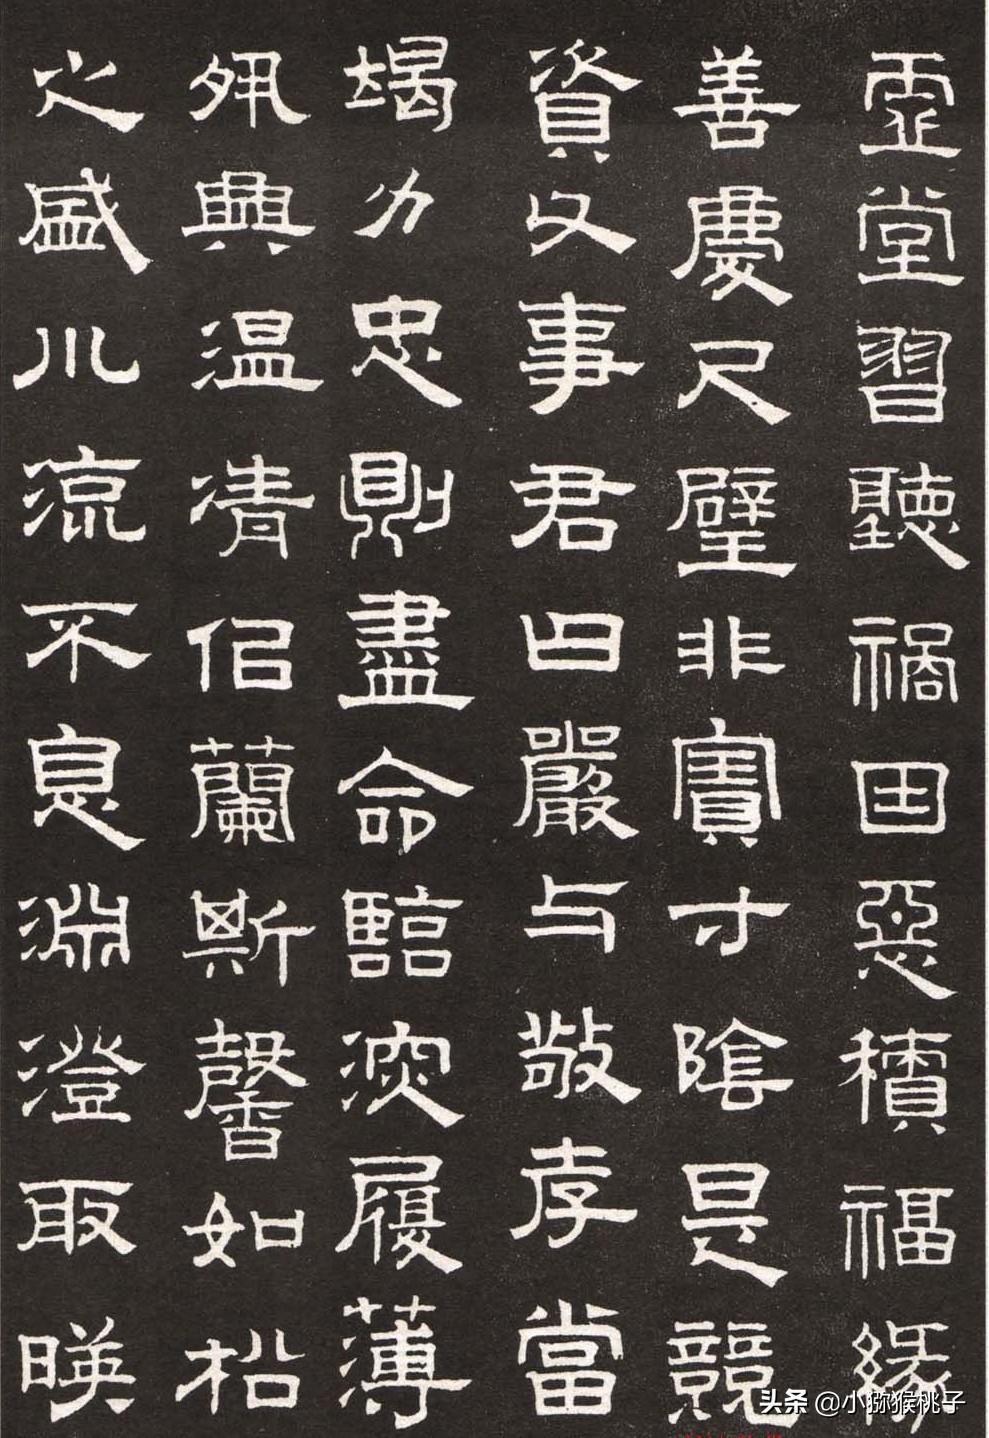 虛堂習聽禍因惡積福緣
善慶尺璧非寶寸陰是競
資父事君曰嚴与敬孝當
竭力忠則盡命臨深履薄
夙興温凊侣蘭斯馨如松
之盛川流不息淵澄取暎
头条 @小猕猴桃子